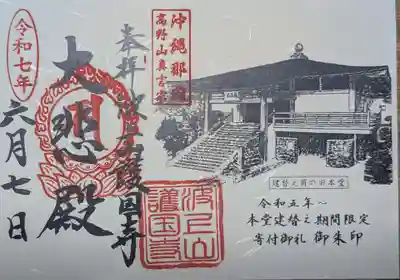 沖縄那覇
高野山真言宗
奉拝
波上山護国寺
大悲殿
令和七年
六月七日
波上山
護国寺
建替え前の旧本堂
令和五年~
本堂建替え期間限定
寄付御礼 御朱印